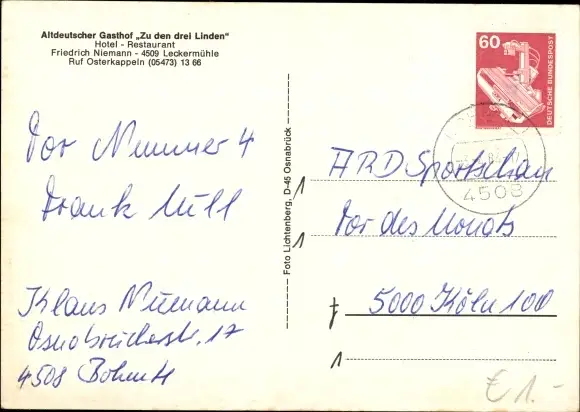 Altdeutscher Gasthof „Zu den drei Linden"
Hotel - Restaurant
Friedrich Niemann - 4509 Leckermühle
Ruf Osterkappeln (05473) 13 66
60
DEUTSCHE BUNDESPOST
4508
Tor Nummer 4
Frank Mill
Klaus Niemann
Osnabrückerstr. 17
4508 Bohmte
Foto Lichtenberg, D-45 Osnabrück
ARD Sportschau
Tor des Monats
5000 Köln 100
€ 1.-